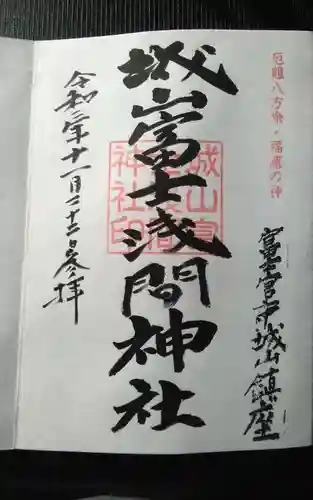 厄難八方除・福寿の神
富士宮市城山鎮座
城山富士浅間神社
城山富
士浅間
神社印
令和三年十一月二十二日参拝